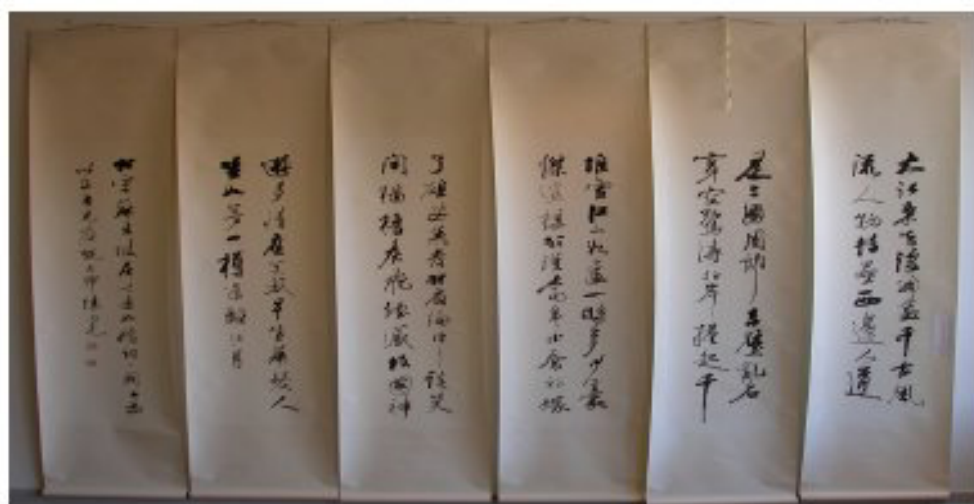 大江東去浪淘盡千古風
流人物故壘西邊人道
是三國周郎赤壁乱石
穿空驚濤拍岸捲起千
堆雪江山如畫一時多少豪
傑遥想公瑾當年小喬初嫁
了雄姿英發羽扇綸巾談笑
間檣櫓灰飛煙滅故國神
遊多情應笑我早生華髮人
生如夢一樽還酹江月